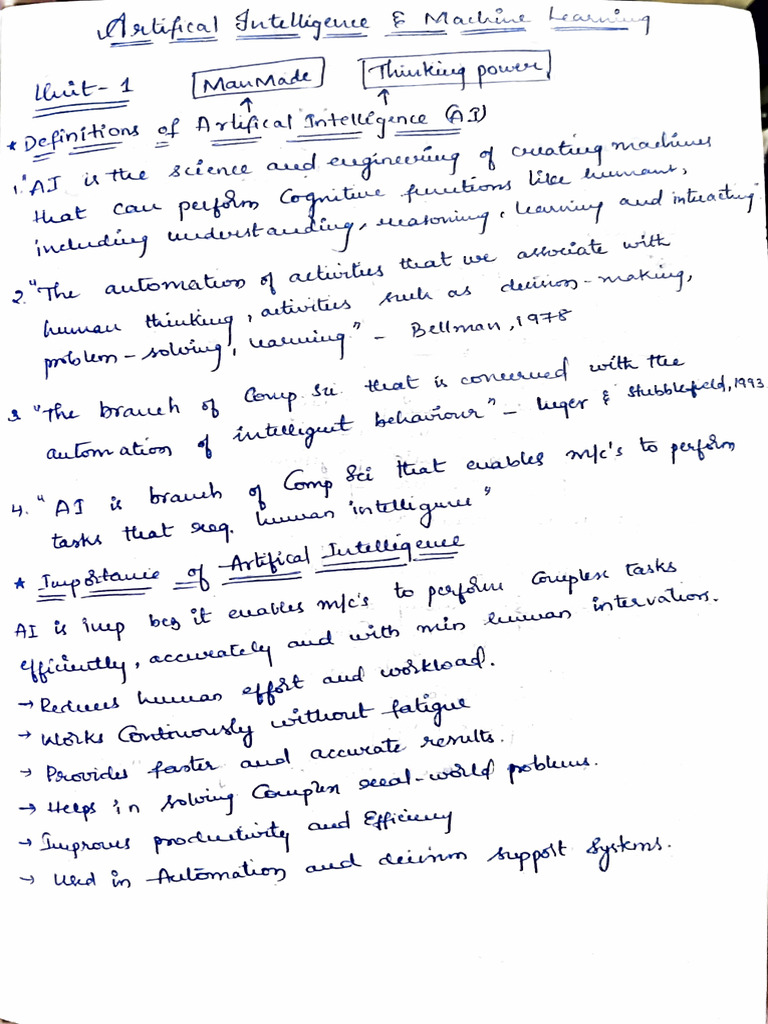 Artifical Intelligence & Machine Learning
Unit-1 ManMade Thinking power
↑ ↑
* Definitions of Artifical Intelligence (AI)
1. "AI is the science and engineering of creating machines
that can perform Cognitive functions like humans,
including understanding, reasoning, learning and interacting.
2. "The automation of activities that we associate with
human thinking, activities such as decision-making,
problem-solving, learning" - Bellman, 1978
3 "The branch of Comp Sci that is concerned with the
automation of intelligent behaviour" - luger & Stubblefield, 1993
4. "AI is branch of Comp Sci that enables m/c's to perform
tasks that req. human intelligence"
* Importance of Artifical Intelligence
AI is imp bcz it enables m/c's to perform Complex tasks
efficiently, accurately and with min human intervation.
→ Reduces human effort and workload.
→ Works Continously without fatigue
→ Provides faster and accurate results.
→ Helps in solving Complex real-world problems.
→ Improves productivity and Efficiency
→ Used in Automation and decision support Systems.